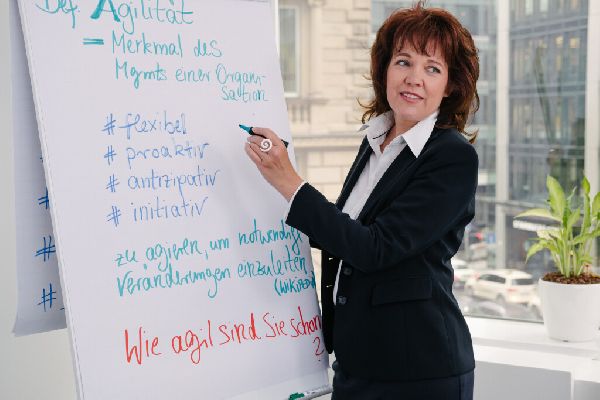 Def. Agilität
= Merkmal des
Mgmts einer Organi-
sation
# flexibel
# proaktiv
# antizipativ
# initiativ
zu agieren, um notwendige
Veränderungen einzuleiten
(Wikipedia
Wie agil sind Sie schon
?
#
#
#